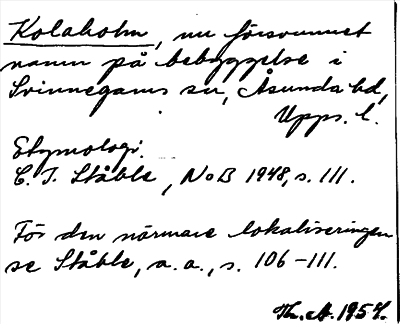 Kolaholm, nu försvunnet
namn på bebyggelse i
Svinnegarns sn, Åsunda hd,
Upps. l.
Etymologi.
C. I. Ståhle, NoB 1948, s. 111.
För den närmare lokaliseringen
se Ståhle, a. a., s. 106-111.
Th. A. 1954.